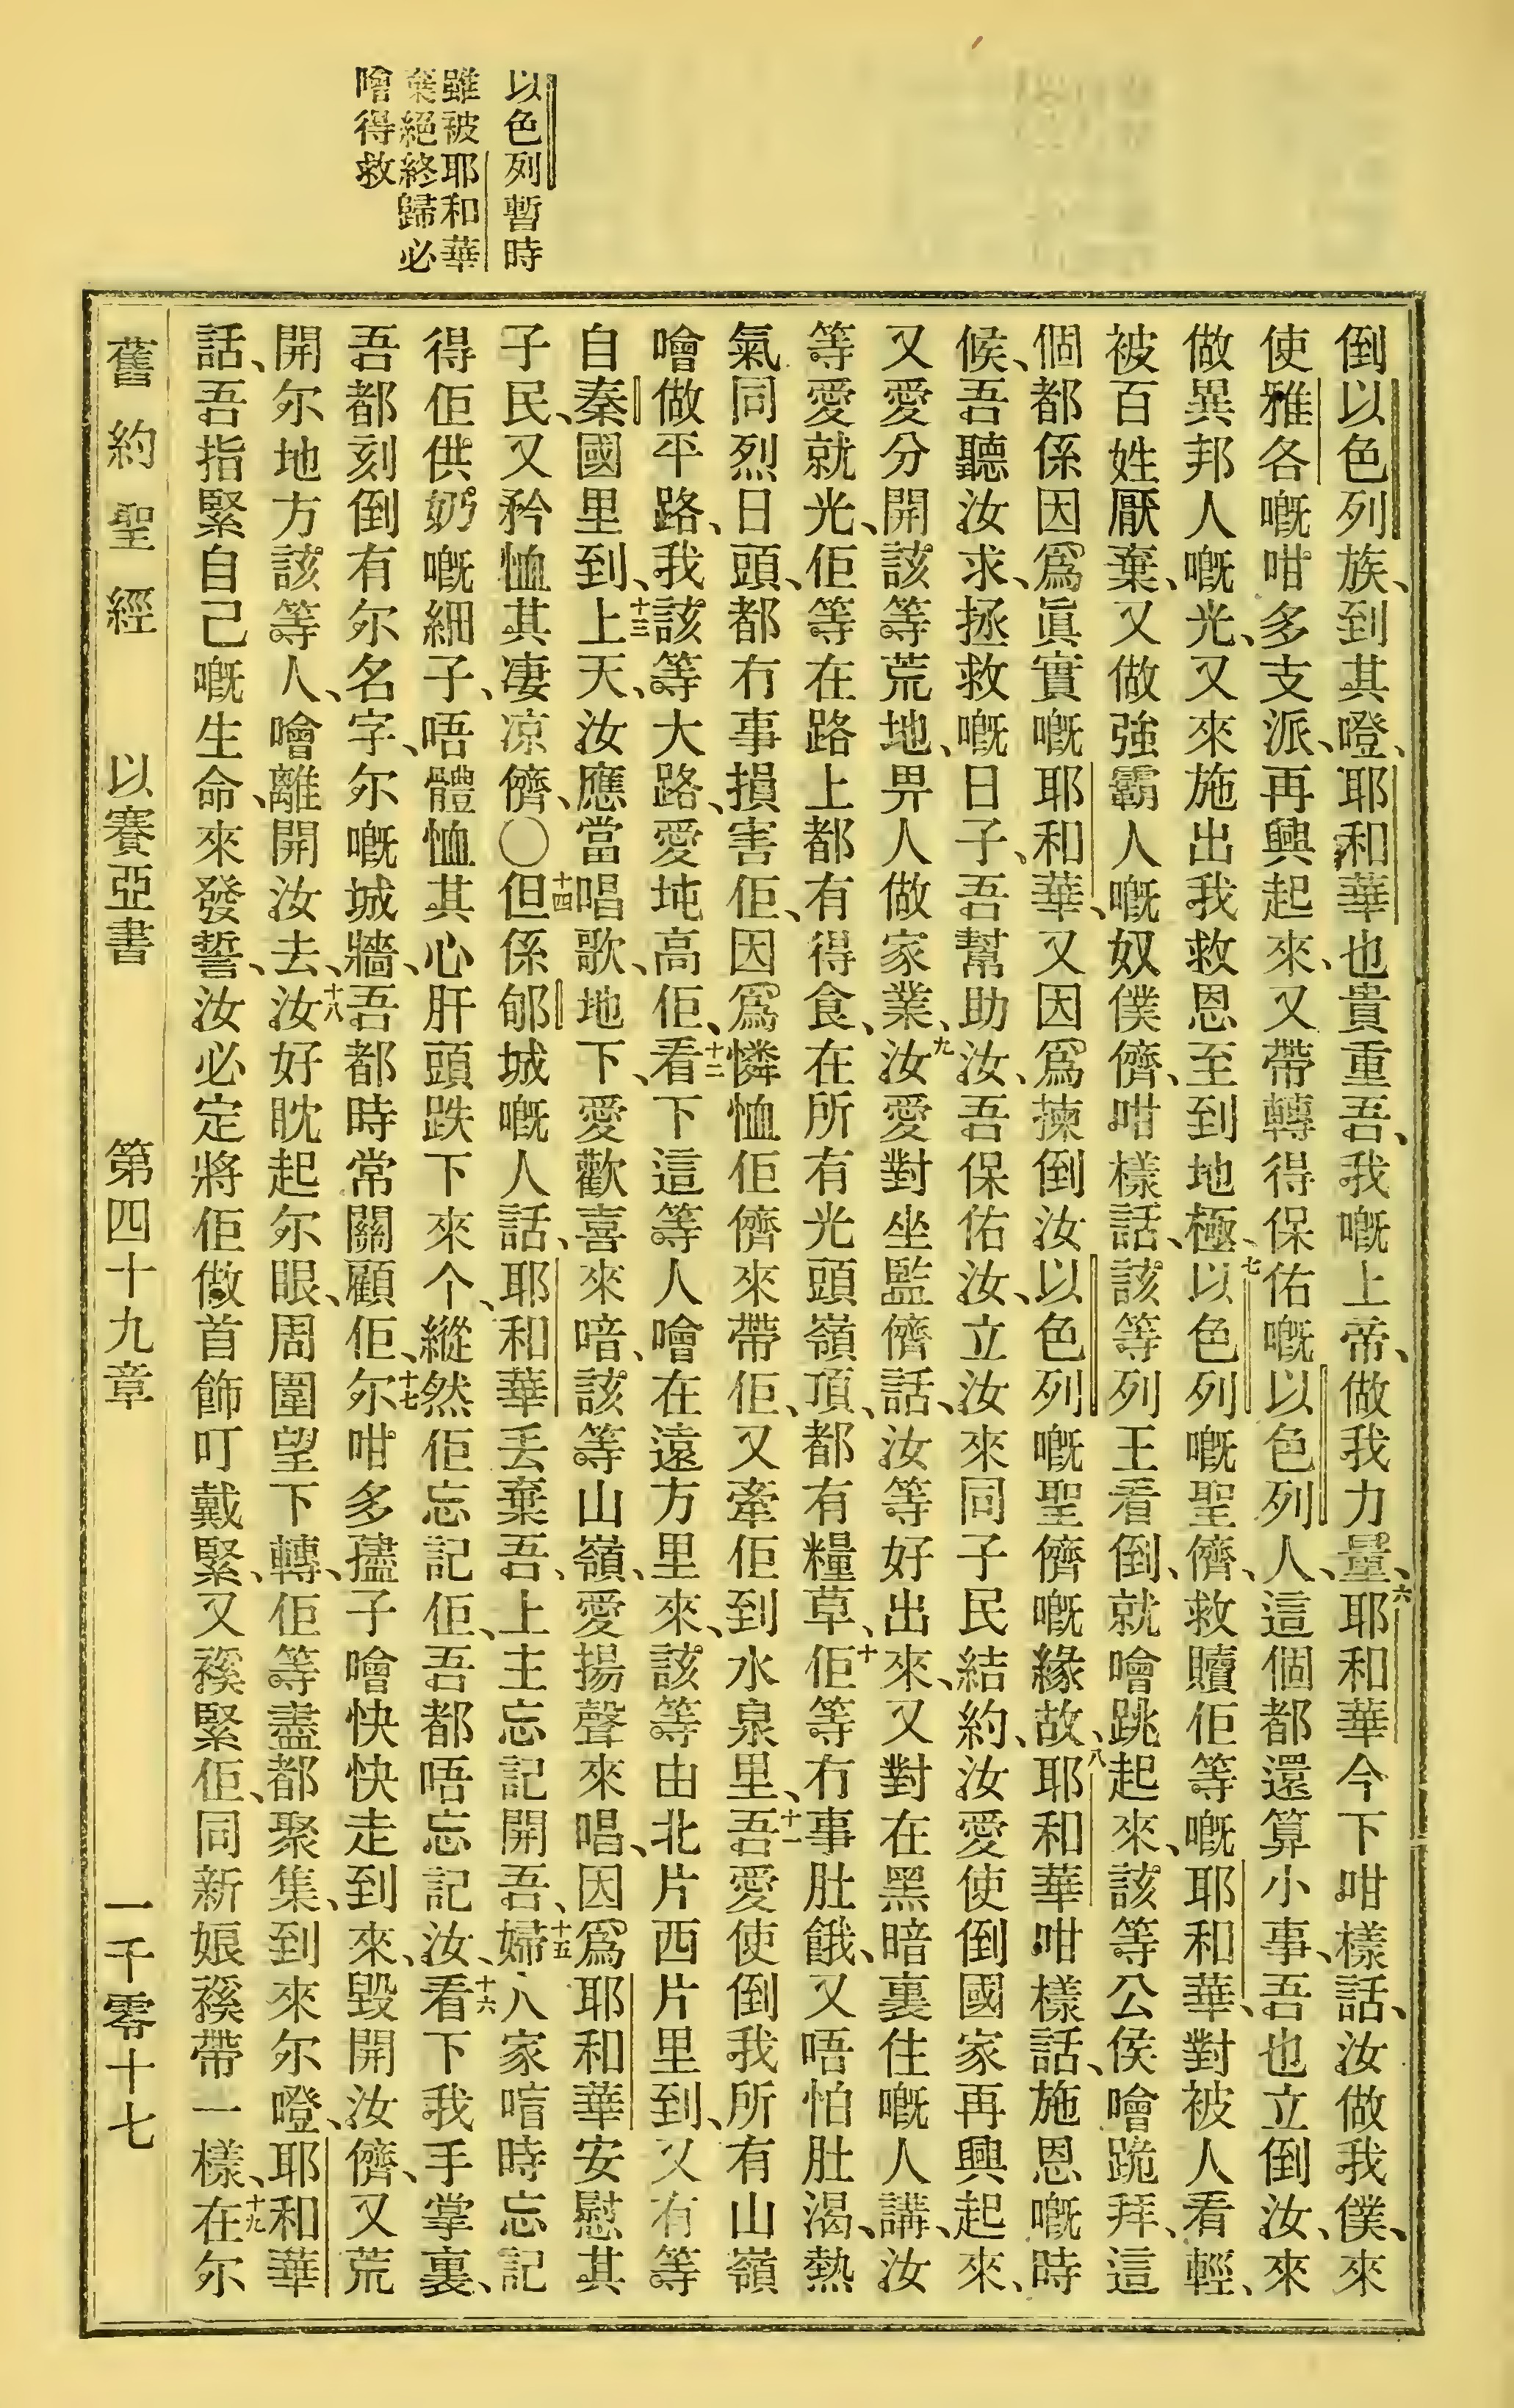 以色列暫時
雖被耶和華
棄絕終歸必
噲得救
倒以色列族、到其噔、耶和華也貴重吾、我嘅上帝、做我力量、六耶和華今下咁樣話、汝做我僕、來
使雅各嘅咁多支派、再興起來、又帶轉得保佑嘅以色列人、這個都還算小事、吾也立倒汝、來
做異邦人嘅光、又來施出我救恩至到地極、七以色列嘅聖儕、救贖佢等嘅耶和華、對被人看輕、
被百姓厭棄、又做強霸人嘅奴僕儕、咁樣話、該等列王看倒、就噲跳起來、該等公侯噲跪拜、這
個都係因爲眞實嘅耶和華、又因爲揀倒汝以色列嘅聖儕嘅緣故、八耶和華咁樣話、施恩嘅時
候、吾聽汝求、拯救嘅日子、吾幫助汝、吾保佑汝、立汝來同子民結約、汝愛使倒國家再興起來、
又愛分開該等荒地、畀人做家業、九汝愛對坐監儕話、汝等好出來、又對在黑暗裏住嘅人講、汝
等愛就光、佢等在路上都有得食、在所有光頭嶺頂、都有糧草、十佢等冇事肚餓、又唔怕肚渴、熱
氣同烈日頭、都冇事損害佢、因爲憐恤佢儕來帶佢、又牽佢到水泉里、十一吾愛使倒我所有山嶺
噲做平路、我該等大路、愛坉高佢、十二看下這等人噲在遠方里來、該等由北片西片里到、又有等
自秦國里到、十三上天、汝應當唱歌、地下、愛歡喜來喑、該等山嶺、愛揚聲來唱、因爲耶和華安慰其
子民、又矜恤其凄凉儕、〇十四但係郇城嘅人話、耶和華丢棄吾、上主忘記開吾、十五婦人家喑時忘記
得佢供奶嘅細子、唔體恤其心肝頭跌下來个、縱然佢忘記佢、吾都唔忘記汝、十六看下我手掌裏、
吾都刻倒有尔名字、尔嘅城牆、吾都時常關顧佢、十七尔咁多孻子噲快快走到來、毀開汝儕、又荒
開尔地方該等人、噲離開汝去、十八汝好眈起尔眼、周圍望下轉、佢等盡都聚集、到來尔噔、耶和華
話、吾指緊自己嘅生命、來發誓、汝必定將佢做首飾叮戴緊、又褑緊佢、同新娘褑帶一樣、十九在尔
舊約聖經 以賽亞書 第四十九章 一千零十七